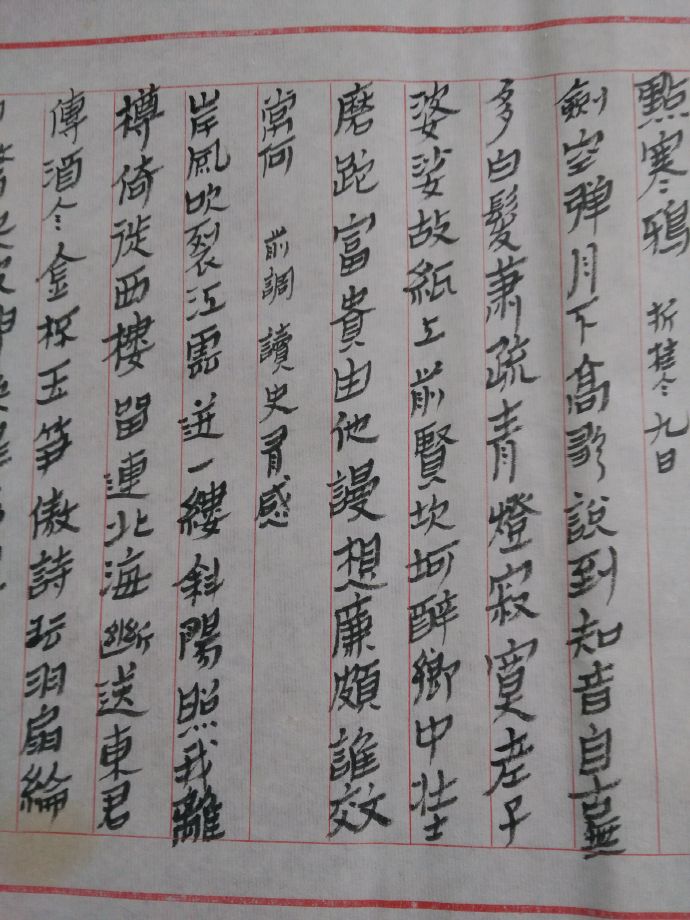 點寒鴉 折桂令 九日
劍空彈月下高歌說到知音自古無
多白髮蕭疏青燈寂寞老子
婆娑故紙上前賢坎坷醉鄉中壯士
磨跎富貴由他謾想廉頗誰效
常何 前調 讀史有感
岸風吹裂江雲迸一縷斜陽照我離
樽倚徙西樓留連北海斷送東君
傳酒令金杯玉筍傲詩壇羽扇綸